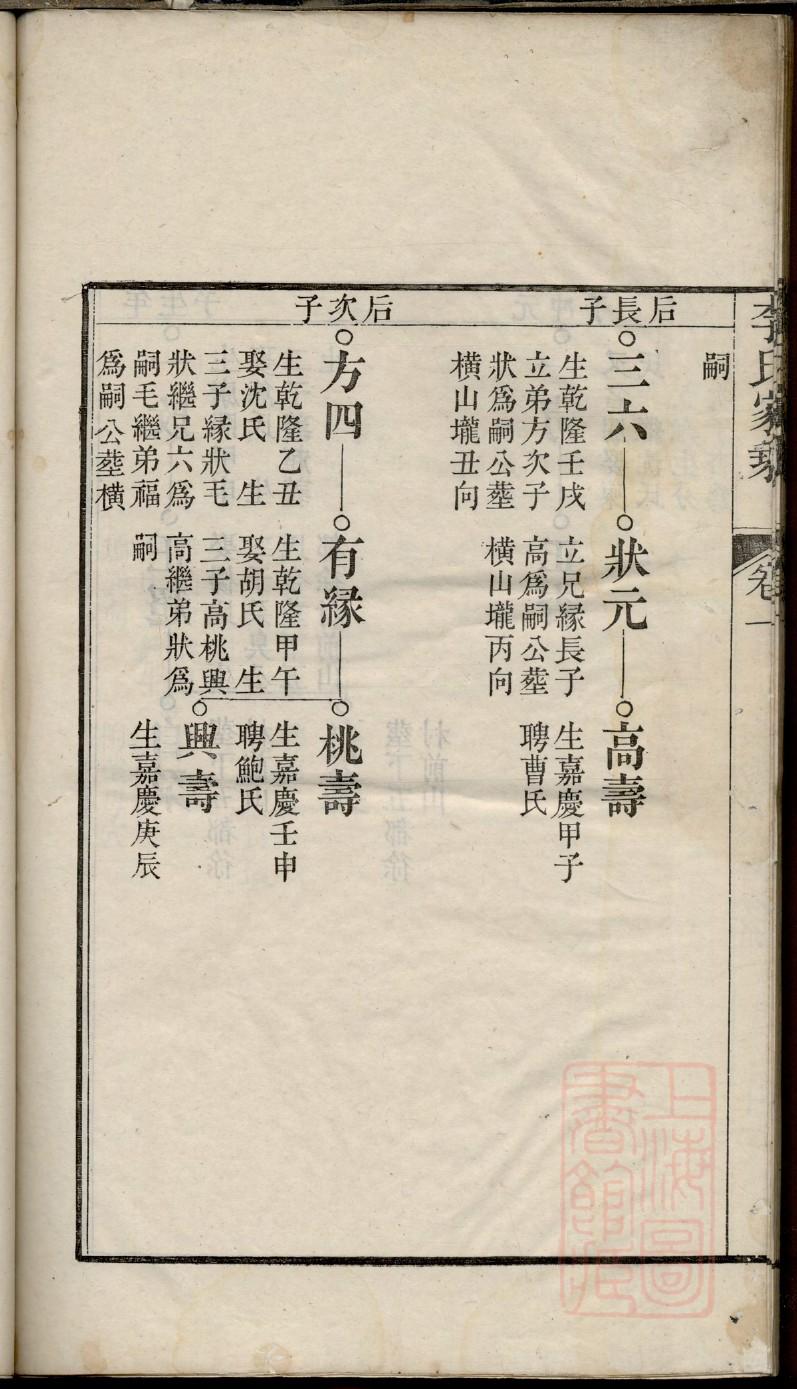 李氏家
卷一
嗣
后長子
三六
生乾隆壬戌
立弟方次子
狀爲嗣公塟
橫山壠丑向
狀元
立兄緣長子
高爲嗣公塟
橫山壠丙向
高壽
生嘉慶甲子
聘曹氏
后次子
方四
生乾隆乙丑
娶沈氏　生
三子緣狀毛
狀繼兄六爲
嗣毛繼弟福
爲嗣公塟橫
有緣
生乾隆甲午
娶胡氏　生
三子高桃興
高繼弟狀爲
嗣
桃壽
生嘉慶壬申
聘鮑氏
興壽
生嘉慶庚辰
上海圖
書館藏